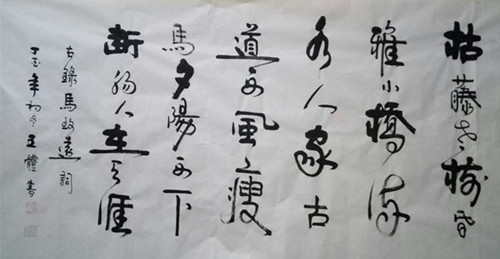 枯藤老樹昏
鴉小橋流
水人家古
道西風瘦
馬夕陽西下
断腸人在天涯
右錄馬致遠詞
年初冬王體書